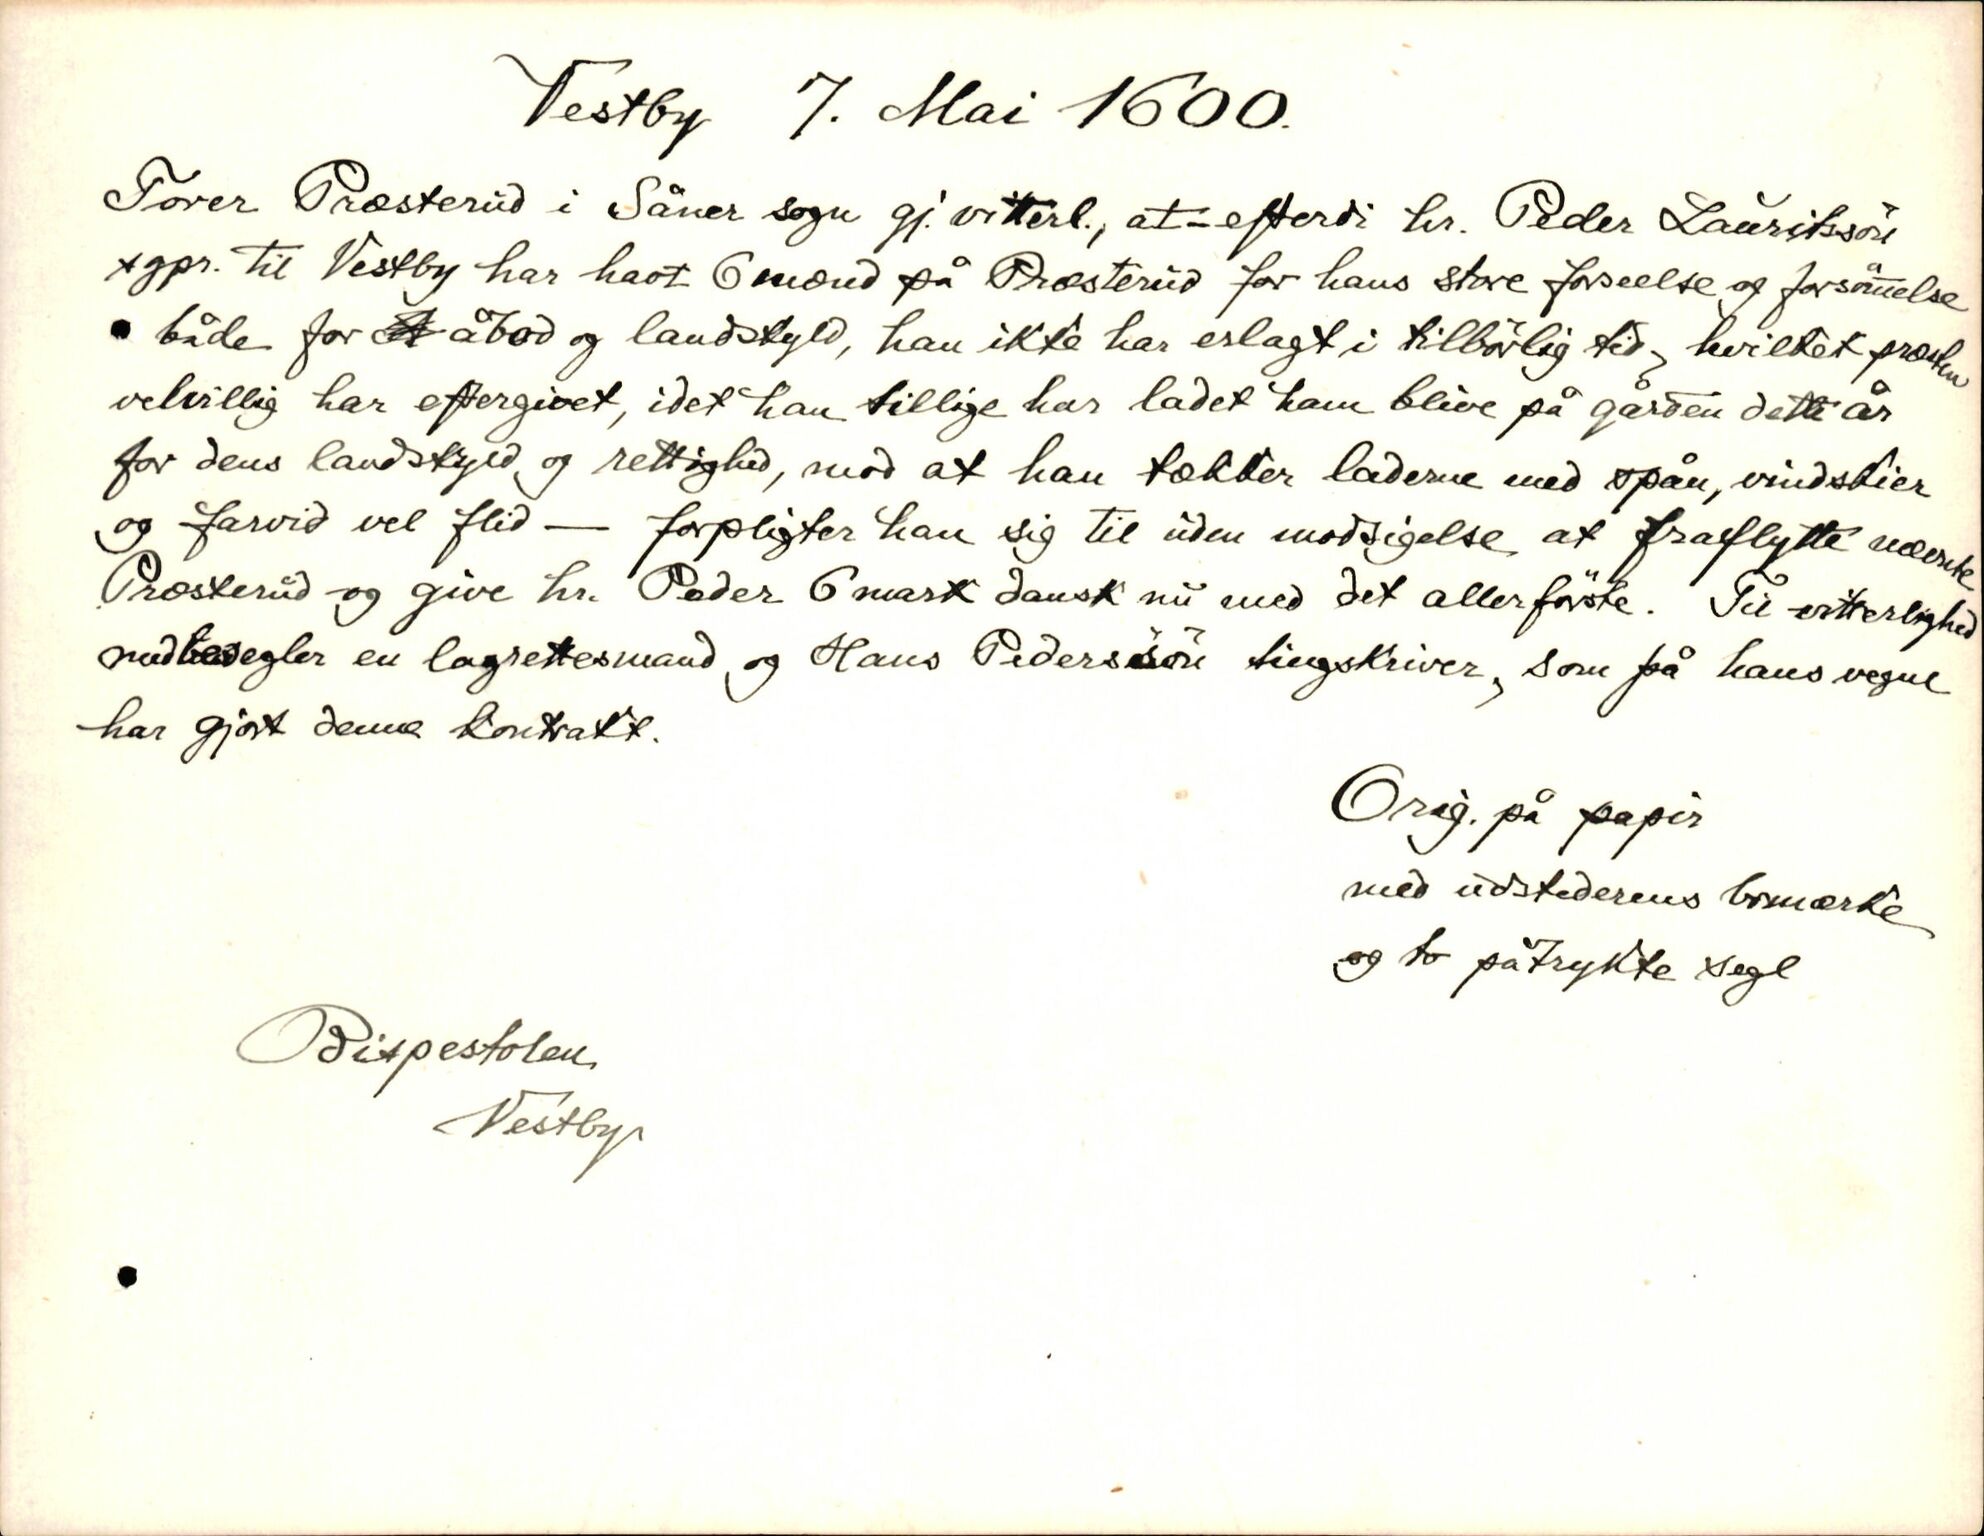 Vestby 7. Mai 1600.
Torer Præsterud i Såner sogn gj. vitterl., at – efterdi hr. Peder Lauritssön
sgpr. til Vestby har havt 6 mænd på Præsterud for hans store forseelse og forsömmelse
både for åbod og landskyld, han ikke har erlagt i tilbörlig tid, hvilket præsten
velvillig har eftergivet, idet han tillige har ladet ham blive på gården dette år
for dens landskyld og rettighed, mod at han tækker laderne med spån, vindskier
og farvid vel flid — forpligter han sig til uden modsigelse at fraflytte nævnte
Præsterud og give hr. Peder 6 mark dansk nu med det allerförste. Til vitterlighed
medbesegler en lagrettesmand og Hans Pederssön tingskriver, som på hans vegne
har gjort denne kontrakt.
Orig. på papir
med udstederens bomærke
og to påtrykte segl
Bispestolen
Vestby